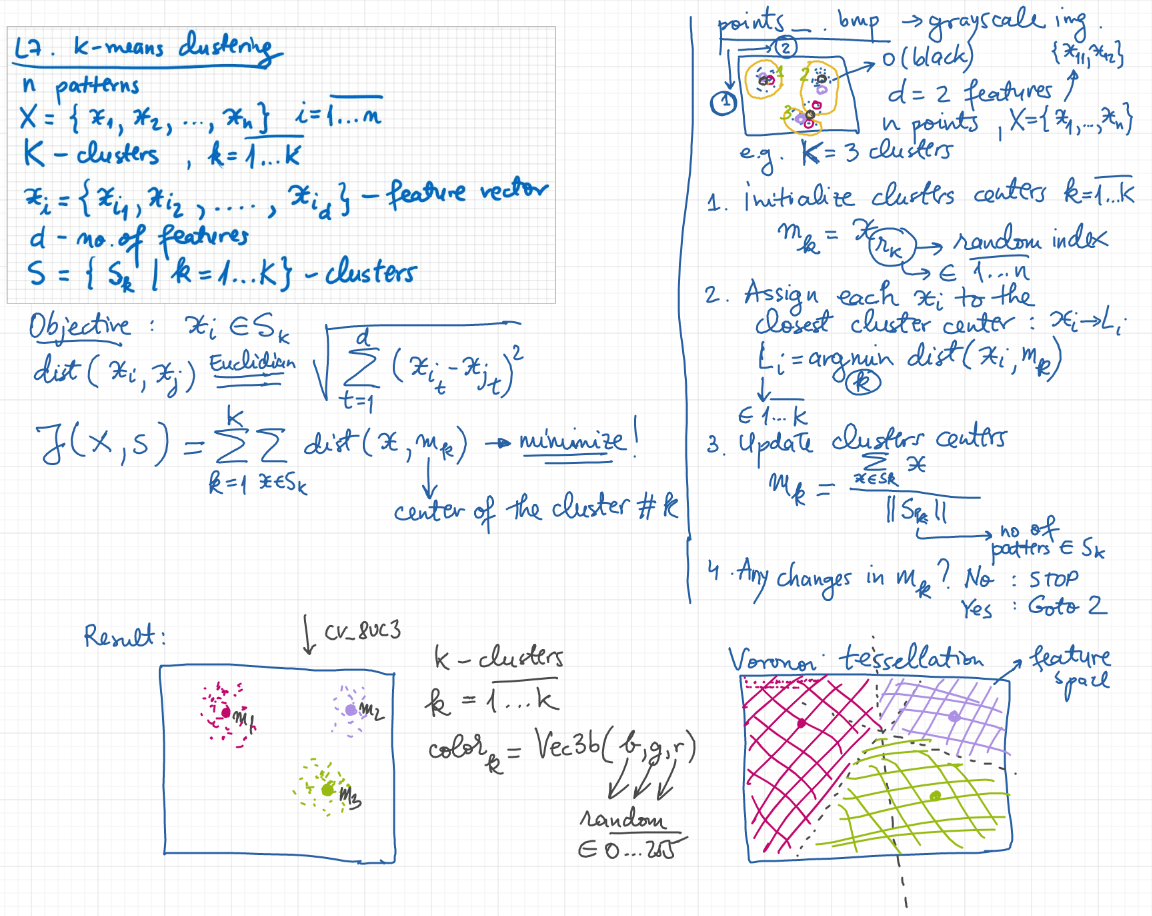 L7. k-means clustering
n patterns
X = { x₁, x₂, ..., xₙ } i=1...n
K - clusters , k=1...K
xᵢ = { xᵢ₁, xᵢ₂ , ...., xᵢd } - feature vector
d - no. of features
S = { Sₖ | k = 1...K} - clusters
Objective : xᵢ ∈ Sₖ
dist( xᵢ, xⱼ) Euclidian √ d Σ t=1 (xᵢₜ - xⱼₜ)²
J(X,S) = K Σ k=1 Σ x∈Sₖ dist(x, mₖ) → minimize!
center of the cluster # k
points_ . bmp → grayscale img.
2
1
1
2
3
0 (black)
{x₁₁, x₁₂}
d = 2 features
n points , X={x₁,...,xₙ}
e.g. K = 3 clusters
1. initialize clusters centers k=1...K
mₖ = x rₖ → random index
→ ∈ 1...n
2. Assign each xᵢ to the
closest cluster center : xᵢ→Lᵢ
Lᵢ = argmin dist( xᵢ, mₖ)
k
∈ 1...K
3. Update clusters centers
mₖ = Σ x∈Sₖ x
||Sₖ||
no of
patters ∈ Sₖ
4. Any changes in mₖ? No : STOP
Yes : Goto 2
Result:
CV_8UC3
m₁
m₂
m₃
k - clusters
k = 1...K
colorₖ = Vec3b( b,g,r)
random
∈ 0...255
Voronoi tessellation
feature
space